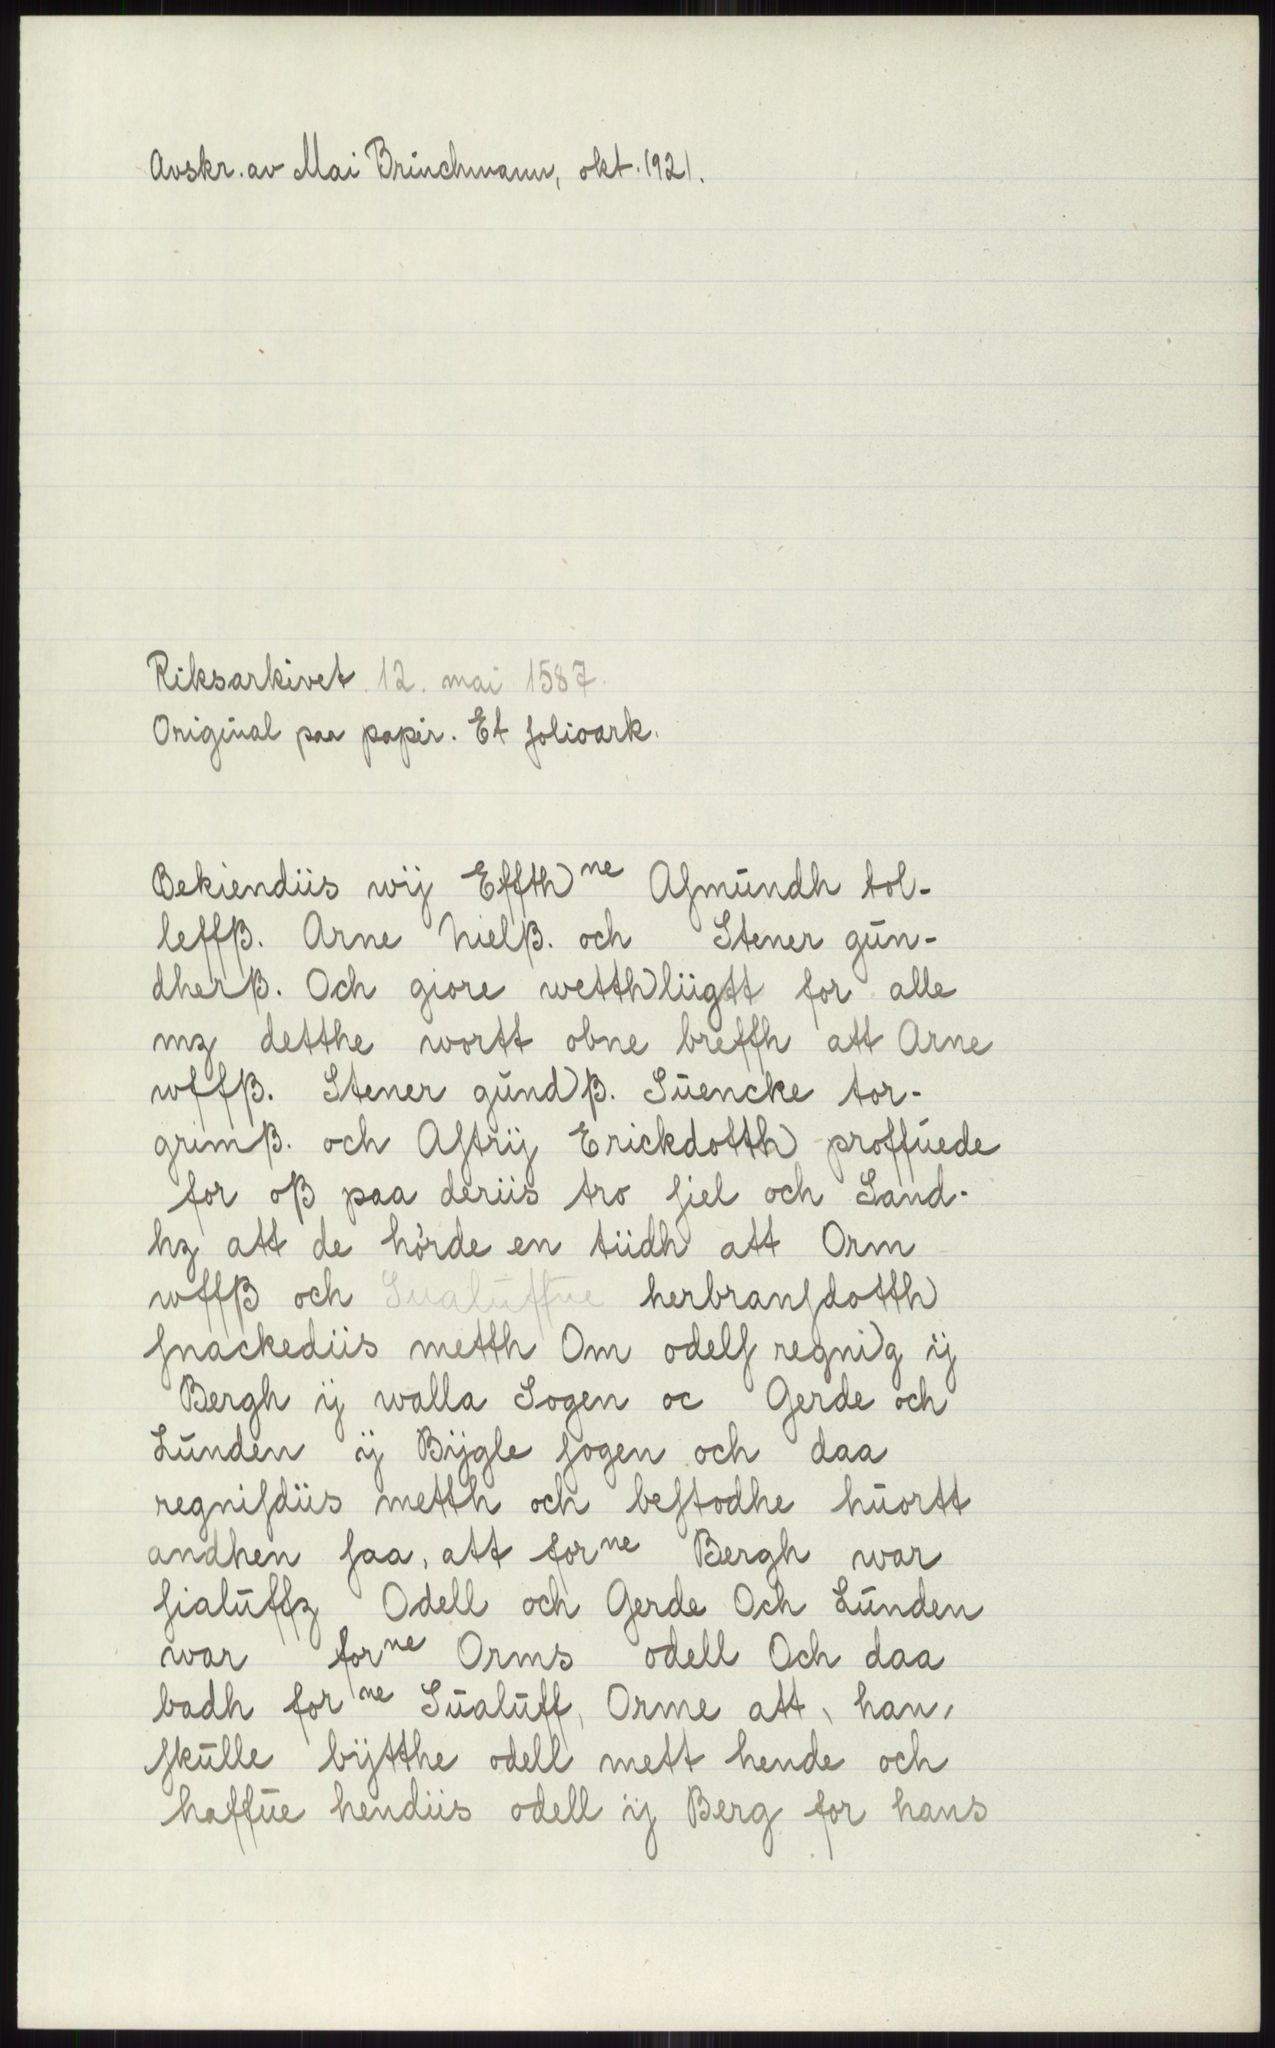 Avskr. av Mai Brinchmann, okt. 1921.
Riksarkivet. 12. mai 1587.
Original paa papir. Et folioark.
Bekiendiis wij Effth ne Aſmundh tol-
leffß. Arne Nielß. och Stener gun-
dherß. Och giore wetthliigtt for alle
mꝫ detthe wortt obne breffh att Arne
wffß. Stener gundß. Suencke tor-
grimß. och Aſtrij Erickdotth proffuede
for oß paa deriis tro ſiel och Sand-
hꝫ att de hørde en tiidh att Orm
wffß och Sualuffue herbranſdotth
ſnackediis metth Om odelſ regnig ij
Bergh ij walla Sogen oc Gerde och
Lunden ij Bijgle ſogen och daa
regniſdiis metth och beſtodhe huortt
andhen ſaa, att for ne Bergh war
ſialuffꝫ Odell och Gerde Och Lunden
war for ne Orms odell Och daa
badh for ne Sualuff, Orme att, han,
ſkulle bijtthe odell mett hende och
haffue hendiis odell ij Berg for hans